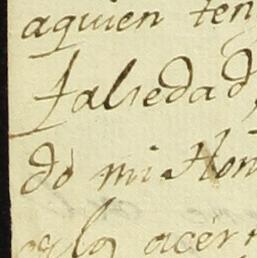 aquien ten
falsedad,
do mi Hon
acer